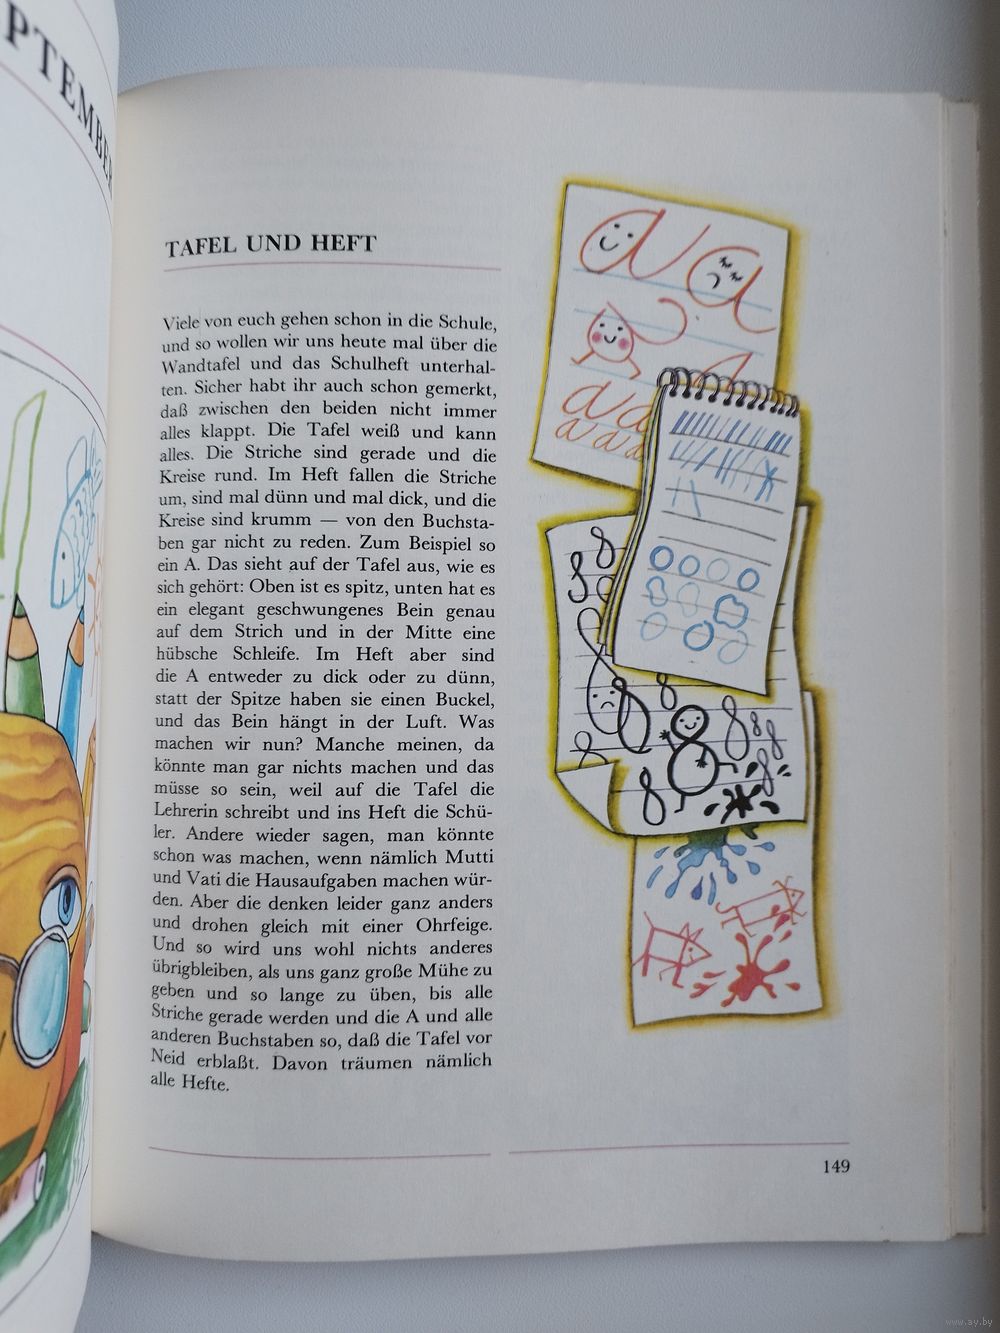 PTEMBER
TAFEL UND HEFT
Viele von euch gehen schon in die Schule,
und so wollen wir uns heute mal über die
Wandtafel und das Schulheft unterhal-
ten. Sicher habt ihr auch schon gemerkt,
daß zwischen den beiden nicht immer
alles klappt. Die Tafel weiß und kann
alles. Die Striche sind gerade und die
Kreise rund. Im Heft fallen die Striche
um, sind mal dünn und mal dick, und die
Kreise sind krumm — von den Buchsta-
ben gar nicht zu reden. Zum Beispiel so
ein A. Das sieht auf der Tafel aus, wie es
sich gehört: Oben ist es spitz, unten hat es
ein elegant geschwungenes Bein genau
auf dem Strich und in der Mitte eine
hübsche Schleife. Im Heft aber sind
die A entweder zu dick oder zu dünn,
statt der Spitze haben sie einen Buckel,
und das Bein hängt in der Luft. Was
machen wir nun? Manche meinen, da
könnte man gar nichts machen und das
müsse so sein, weil auf die Tafel die
Lehrerin schreibt und ins Heft die Schü-
ler. Andere wieder sagen, man könnte
schon was machen, wenn nämlich Mutti
und Vati die Hausaufgaben machen wür-
den. Aber die denken leider ganz anders
und drohen gleich mit einer Ohrfeige.
Und so wird uns wohl nichts anderes
übrigbleiben, als uns ganz große Mühe zu
geben und so lange zu üben, bis alle
Striche gerade werden und die A und alle
anderen Buchstaben so, daß die Tafel vor
Neid erblaßt. Davon träumen nämlich
alle Hefte.
a a
a a
a a a a
149
www.ay.by